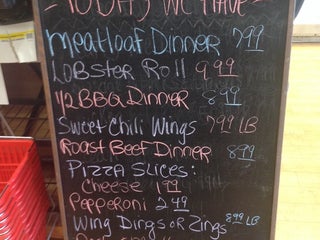 TODAY WE HAVE -
Meatloaf Dinner 7.99
Lobster Roll 9.99
1/2 BBQ Dinner 8.99
Sweet Chili Wings 7.99 LB
Roast Beef Dinner 8.99
Pizza Slices:
Cheese 1.99
Pepperoni 2.49
Wing Dings or Zings 8.99 LB